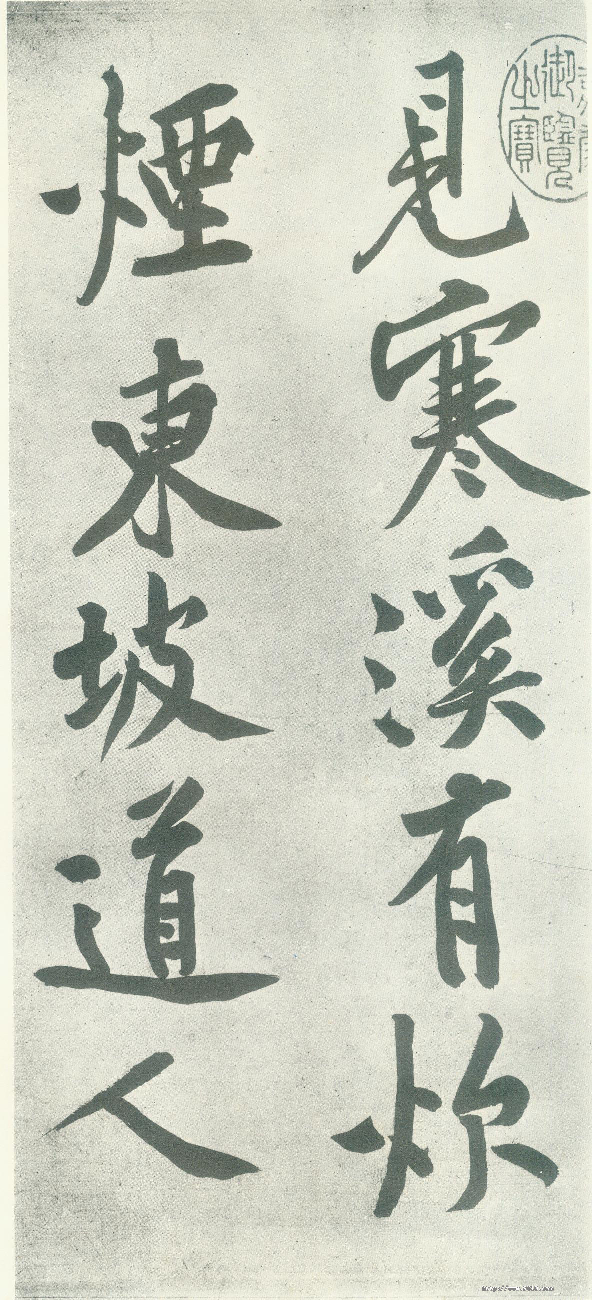 見寒溪有炊
煙東坡道人
御覽
之寶